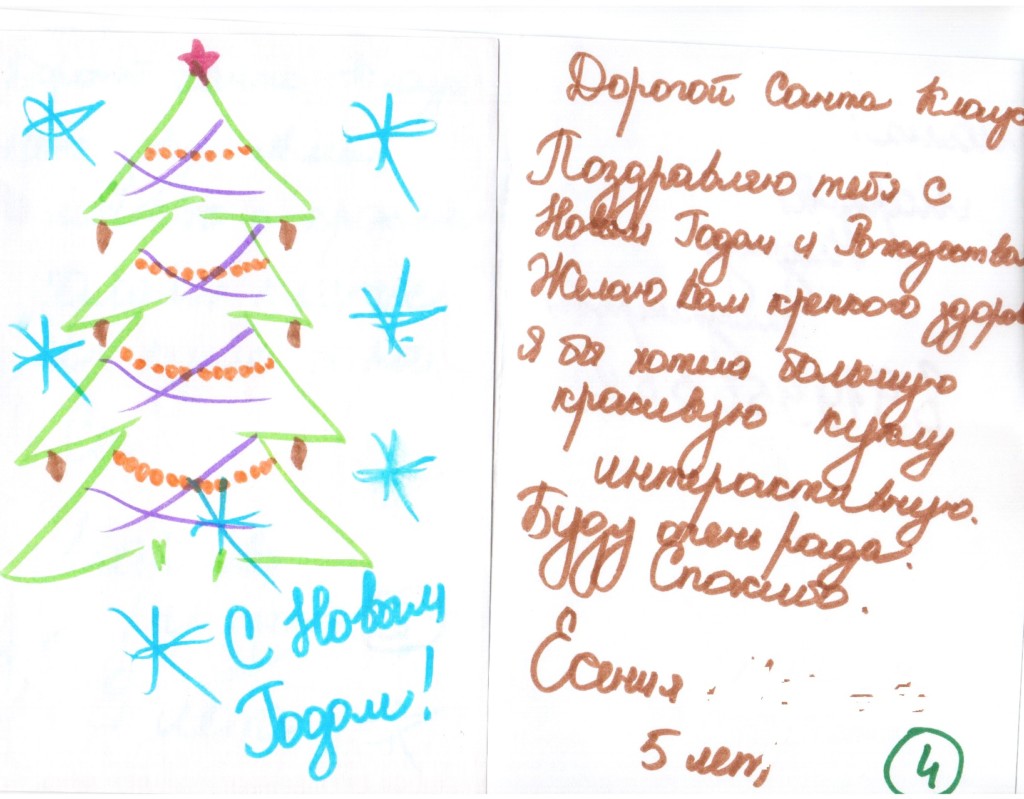 С Новым
Годом!
Дорогой Санта Клаус
Поздравляю тебя с
Новым Годом и Рождеством
Желаю Вам крепкого здоров
Я бы хотела большую
красивую куклу
интерактивную.
Буду очень рада.
Спасибо.
Есения
5 лет,
4